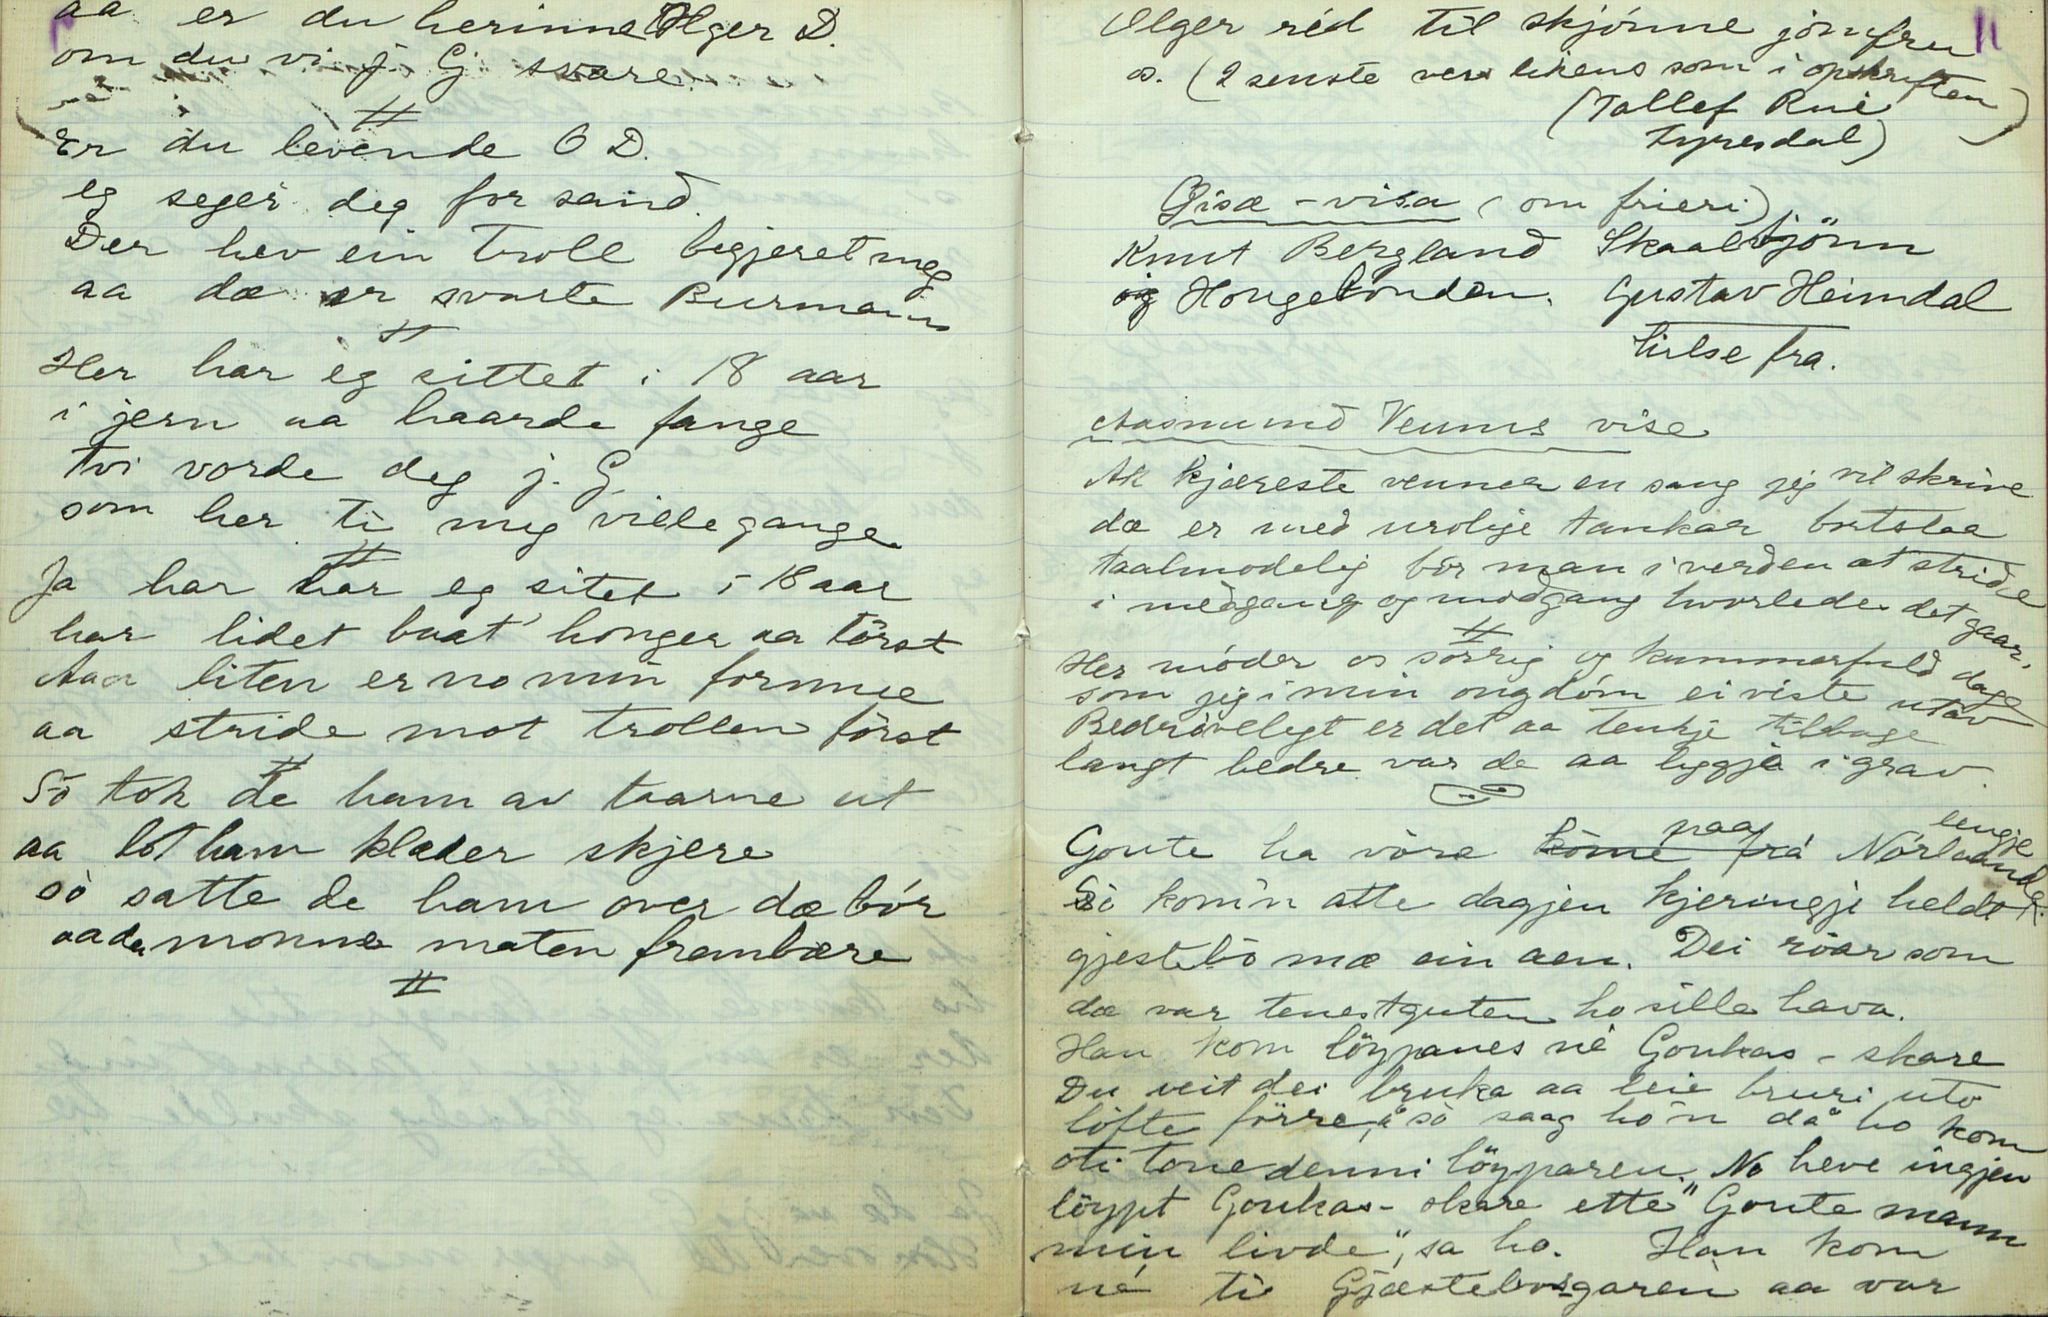 aa er du herinne Olger D.
om du vi j. G svare
#
Er du levende O D.
eg seger deg for sand
Der hev ein Troll begjeret meg
aa dæ er svarte Burmann
#
Her har eg sittet i 18 aar
i jern aa haarde fange
tvi vorde deg j. G
som her ti meg ville gange
#
Ja har har eg sitet i 18 aar
har lidet baat' honger aa törst
Aaa liten er no min formue
aa stride mot trollen först
#
So tok de ham av taarne ut
aa lot ham klæder skjere
so satte de ham over dæ bór
aa de monne maten frembære
#
11
Olger réd til skjónne jómfru
os. (2 senste vers likens som i opskriften)
(Tallef Rui
Fyresdal)
Gisæ-visa (om frieri)
Knut Bergland Skaalbjönn
og Hougebonden. Gustav Heimdal
hilse fra.
Aasmund Venums vise
Ak kjæreste venner en sang jeg vil skrive
dæ er med urolije tankar bortslaa
taalmodelig bör man i verden at stride
i medgang og modgang hvorledes det gaar.
#
Her möder os sorrig og kummerfuld dage
som jeg i min ongdóm ei viste utav
Bedróvelegt er det aa tenkje tilbage
langt bedre var de aa liggja i grav.
Goute ha vöre kòme frá paa Nórlaande lengje
So kom'n atte dagjen kjeringji heldt
gjestebo mæ ein aen. Dei róar som
dæ var tenestguten ho sille hava.
Han kom löypanes né Goukas-skare
Du veit dei bruka aa leie bruri uto
lófte förre, å so saag ho'n då ho kom
oti tone denni löyparen. No heve ingjen
löypt Goukas-skare ette "Goute mann
min livde", sa ho. Han kom
né ti Gjæstebosgaren aa var